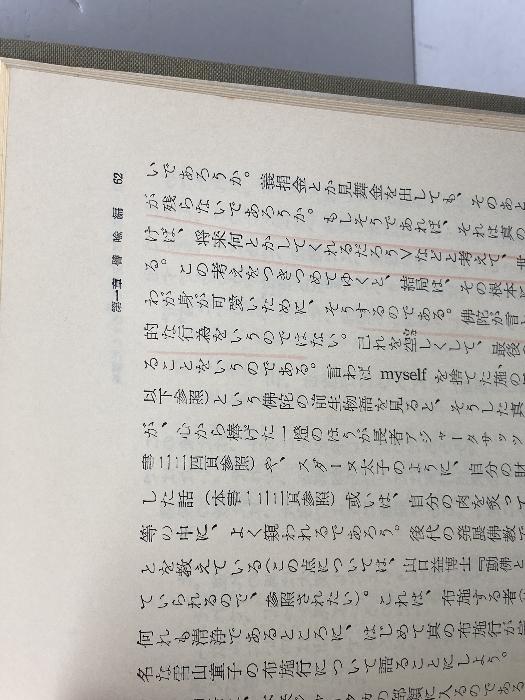 62
第一章 譬喩編
いであろうか。義捐金とか見舞金を出しても、そのあと
が残らないであろうか。もしそうであれば、それは真の
けば、将来何とかしてくれるだろう∨などと考えて、
る。この考えをつきつめてゆくと、結局は、その根本に
わが身が可愛いために、そうするのである。佛陀が言
的な行為をいうのではない。己れを空しくして、最後
ることをいうのである。言わば myself を捨てた施の
以下参照)という佛陀の前生物語を見ると、そうした真
が、心から捧げた一燈のほうが長者アジャータサッツ
書二二四頁参照)や、スダーヌ太子のように、自分の財
した話(本書一二三頁参照)或いは、自分の肉を炙って
等の中に、よく窺われるであろう。後代の発展佛教で
とを教えている(この点については、山口益博士『動佛と
ていられるので、参照されたい)。これは、布施する者の
何れも清浄であるところに、はじめて真の布施行が
名な雪山童子の布施行について語ることにしよう。
の部類に入るのである